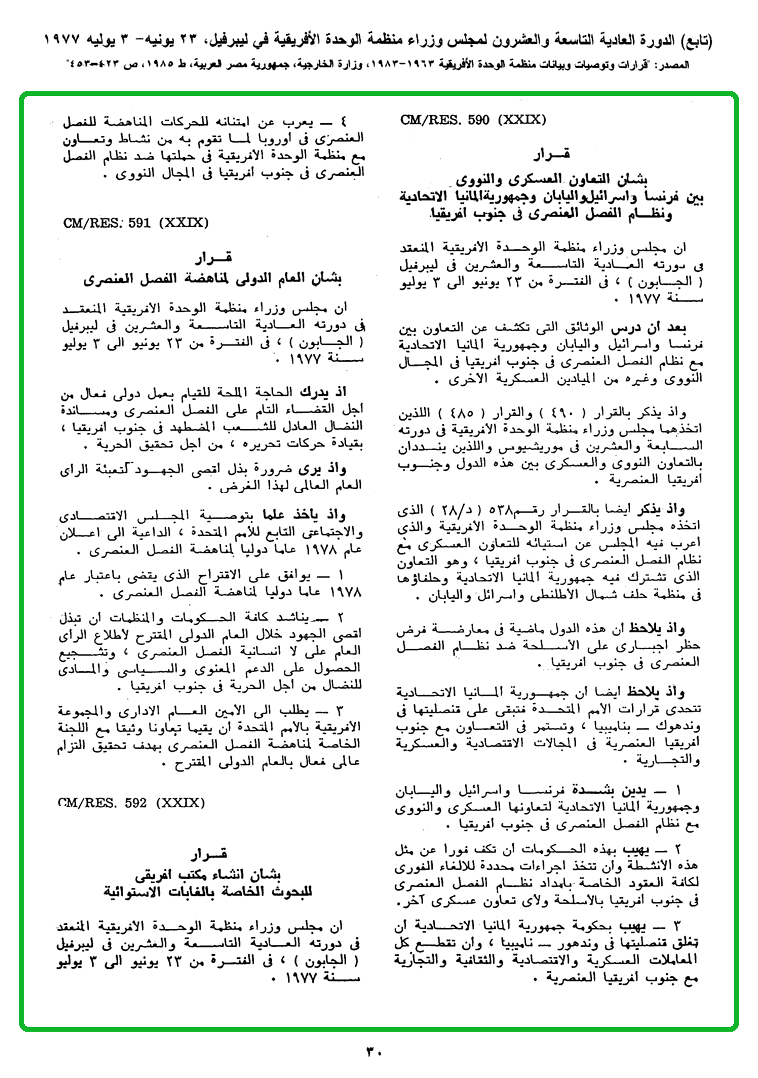 (تابع) الدورة العادية التاسعة والعشرون لمجلس وزراء منظمة الوحدة الأفريقية في ليبرفيل، ٢٣ يونيه- ٣ يوليه ١٩٧٧
المصدر: "قرارات وتوصيات وبيانات منظمة الوحدة الأفريقية ١٩٦٣-١٩٨٣، وزارة الخارجية، جمهورية مصر العربية، ط ١٩٨٥، ص ٤٢٣-٤٥٣"
CM/RES. 590 (XXIX)
قـــرار
بشان التعاون العسكرى والنووى
بين فرنسا واسرائيل واليابان وجمهورية المانيا الاتحادية
ونظـام الفصل العنصرى فى جنوب أفريقيا.
ان مجلس وزراء منظمة الوحـدة الافريقية المنعقد
فى دورته العـادية التاسـعة والعشرين فى ليبرفيل
( الجـابون ) ، فى الفتـرة من ٢٣ يونيو الى ٣ يوليو
سـنة ١٩٧٧ .
بعد أن درس الوثائق التى تكشف عن التعاون بين
فرنسا واسرائيل واليابان وجمهورية المانيا الاتحادية
مع نظام الفصل العنصرى فى جنوب أفريقيا فى المجـال
النووى وغيره من الميادين العسكرية الأخرى .
واذ يذكر بالقرار ( ٤٩٠ ) والقرار ( ٤٨٥ ) اللذين
اتخذهما مجلس وزراء منظمة الوحدة الافريقية فى دورته
السـابعة والعشرين فى موريشيوس واللذين ينـددان
بالتعاون النووى والعسكرى بين هذه الدول وجنـوب
أفريقيا العنصرية .
واذ يذكر ايضا بالقـرار رقم ٥٣٨ ( د/٢٨ ) الذى
اتخذه مجلس وزراء منظمة الوحـدة الافريقية والذى
أعرب فيه المجلس عن استيائه للتعاون العسكرى مع
نظام الفصل العنصرى فى جنوب أفريقيا ، وهو التعاون
الذى تشترك فيه جمهورية المانيا الاتحادية وحلفاؤها
فى منظمة حلف شمال الأطلنطى واسرائل واليابان .
واذ يلاحظ ان هذه الدول ماضية فى معارضـة فرض
حظر اجبـارى على الأسـلحة ضد نظـام الفصـل
العنصرى فى جنوب أفريقيا .
واذ يلاحظ ايضا ان جمهـورية المـانيا الاتحـادية
تتحدى قرارات الأمم المتحـدة فتبقى على قنصليتها فى
وندهوك ــ بناميبيا ، وتستمر فى التعـاون مع جنوب
أفريقيا العنصرية فى المجالات الاقتصادية والعسكرية
والتجـارية .
١ ــ يدين بشـدة فرنسـا واسرائيل واليـابان
وجمهورية المانيا الاتحادية لتعاونها العسكرى والنووى
مع نظام الفصل العنصرى فى جنوب أفريقيا .
٢ ــ يهيب بهذه الحـكومات أن تكف فورا عن مثل
هذه الأنشطة وأن تتخذ اجراءات محددة للالغاء الفورى
لكافة العقود الخاصة بامداد نظـام الفصل العنصرى
فى جنوب أفريقيا بالأسلحة ولأى تعاون عسكرى آخر.
٣ ــ يهيب بحكومة جمهورية المانيا الاتحـادية أن
تغلق قنصليتها فى وندهور ــ ناميبيا ، وأن تقطـع كل
المعاملات العسكرية والاقتصادية والثقافية والتجارية
مع جنوب أفريقيا العنصرية .
٤ ــ يعرب عن امتنانه للحركات المناهضة للفصل
العنصرى فى أوروبا لمـا تقوم به من نشاط وتعـاون
مع منظمة الوحدة الأفريقية فى حملتها ضد نظام الفصل
العنصرى فى جنوب أفريقيا فى المجال النووى .
CM/RES. 591 (XXIX)
قـــرار
بشان العام الدولى لمناهضة الفصل العنصرى
ان مجلس وزراء منظمة الوحدة الافريقية المنعقـد
فى دورته العـادية التاسـعة والعشرين فى ليبرفيل
( الجـابون ) ، فى الفتـرة من ٢٣ يونيو الى ٣ يوليو
سـنة ١٩٧٧ .
اذ يدرك الحاجة الملحة للقيام بعمل دولى فعال من
أجل القضـاء التام على الفصل العنصرى ومسـاندة
النضال العادل للشـعب المضطهد فى جنوب أفريقيا ،
بقيادة حركات تحريره ، من أجل تحقيق الحرية .
واذ يرى ضرورة بذل اقصى الجهود لتعبئة الراى
العام العالمى لهذا الغرض .
واذ يأخذ علما بتوصـية المجـلس الاقتصـادى
والاجتماعى التابع للأمم المتحدة ، الداعية الى اعـلان
عام ١٩٧٨ عاما دوليا لمناهضة الفصل العنصرى .
١ ــ يوافق على الاقتراح الذى يقضى باعتبار عام
١٩٧٨ عاما دوليا لمناهضة الفصل العنصرى .
٢ ــ يناشد كافة الحـكومات والمنظمات أن تبذل
اقصى الجهود خلال العام الدولى المقترح لاطلاع الرأى
العام على لا انسانية الفصل العنصرى ، وتشـجيع
الحصول على الدعم المعنوى والسـياسى والمـادى
للنضال من أجل الحرية فى جنوب أفريقيا .
٣ ــ يطلب الى الأمين العـام الادارى والمجموعة
الأفريقية بالأمم المتحدة أن يقيما تعاونا وثيقا مع اللجنة
الخاصة لمناهضة الفصل العنصرى بهدف تحقيق التزام
عالمى فعال بالعام الدولى المقترح .
CM/RES. 592 (XXIX)
قـــرار
بشان انشاء مكتب افريقى
للبحوث الخاصة بالغابات الاستوائية
ان مجلس وزراء منظمة الوحـدة الافريقية المنعقد
فى دورته العـادية التاسـعة والعشرين فى ليبرفيل
( الجابون ) ، فى الفتـرة من ٢٣ يونيو الى ٣ يوليو
سـنة ١٩٧٧ .
٣٠